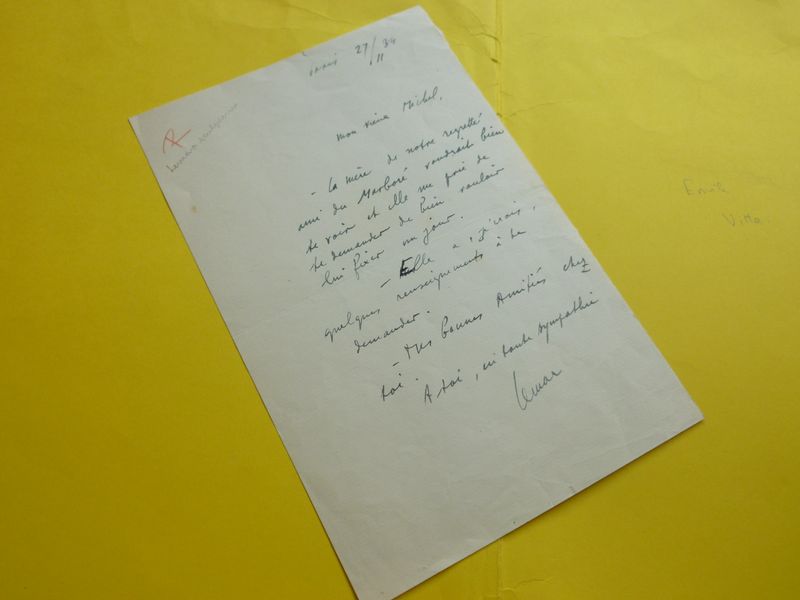 Paris 27/11 34
Mon vieux Michel,
- La mère de notre regretté
ami du Marboré voudrait bien
te voir et elle me prie de
te demander de bien vouloir
lui fixer un jour.
- Elle a, je crois,
quelques renseignements à te
demander.
- Mes bonnes Amitiés chez
toi.
A toi, en toute sympathie
Lemar
Emile
Vitta